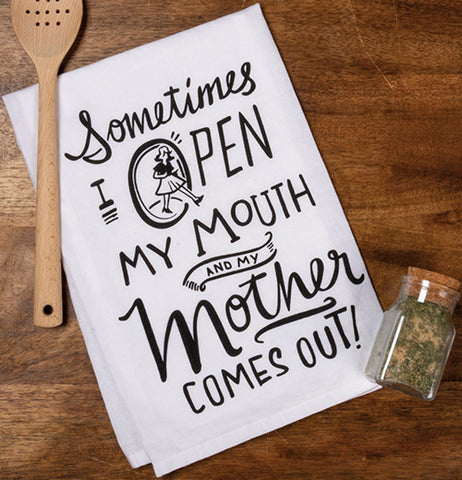 Sometimes
I OPEN
MY MOUTH
AND MY
Mother
COMES OUT!